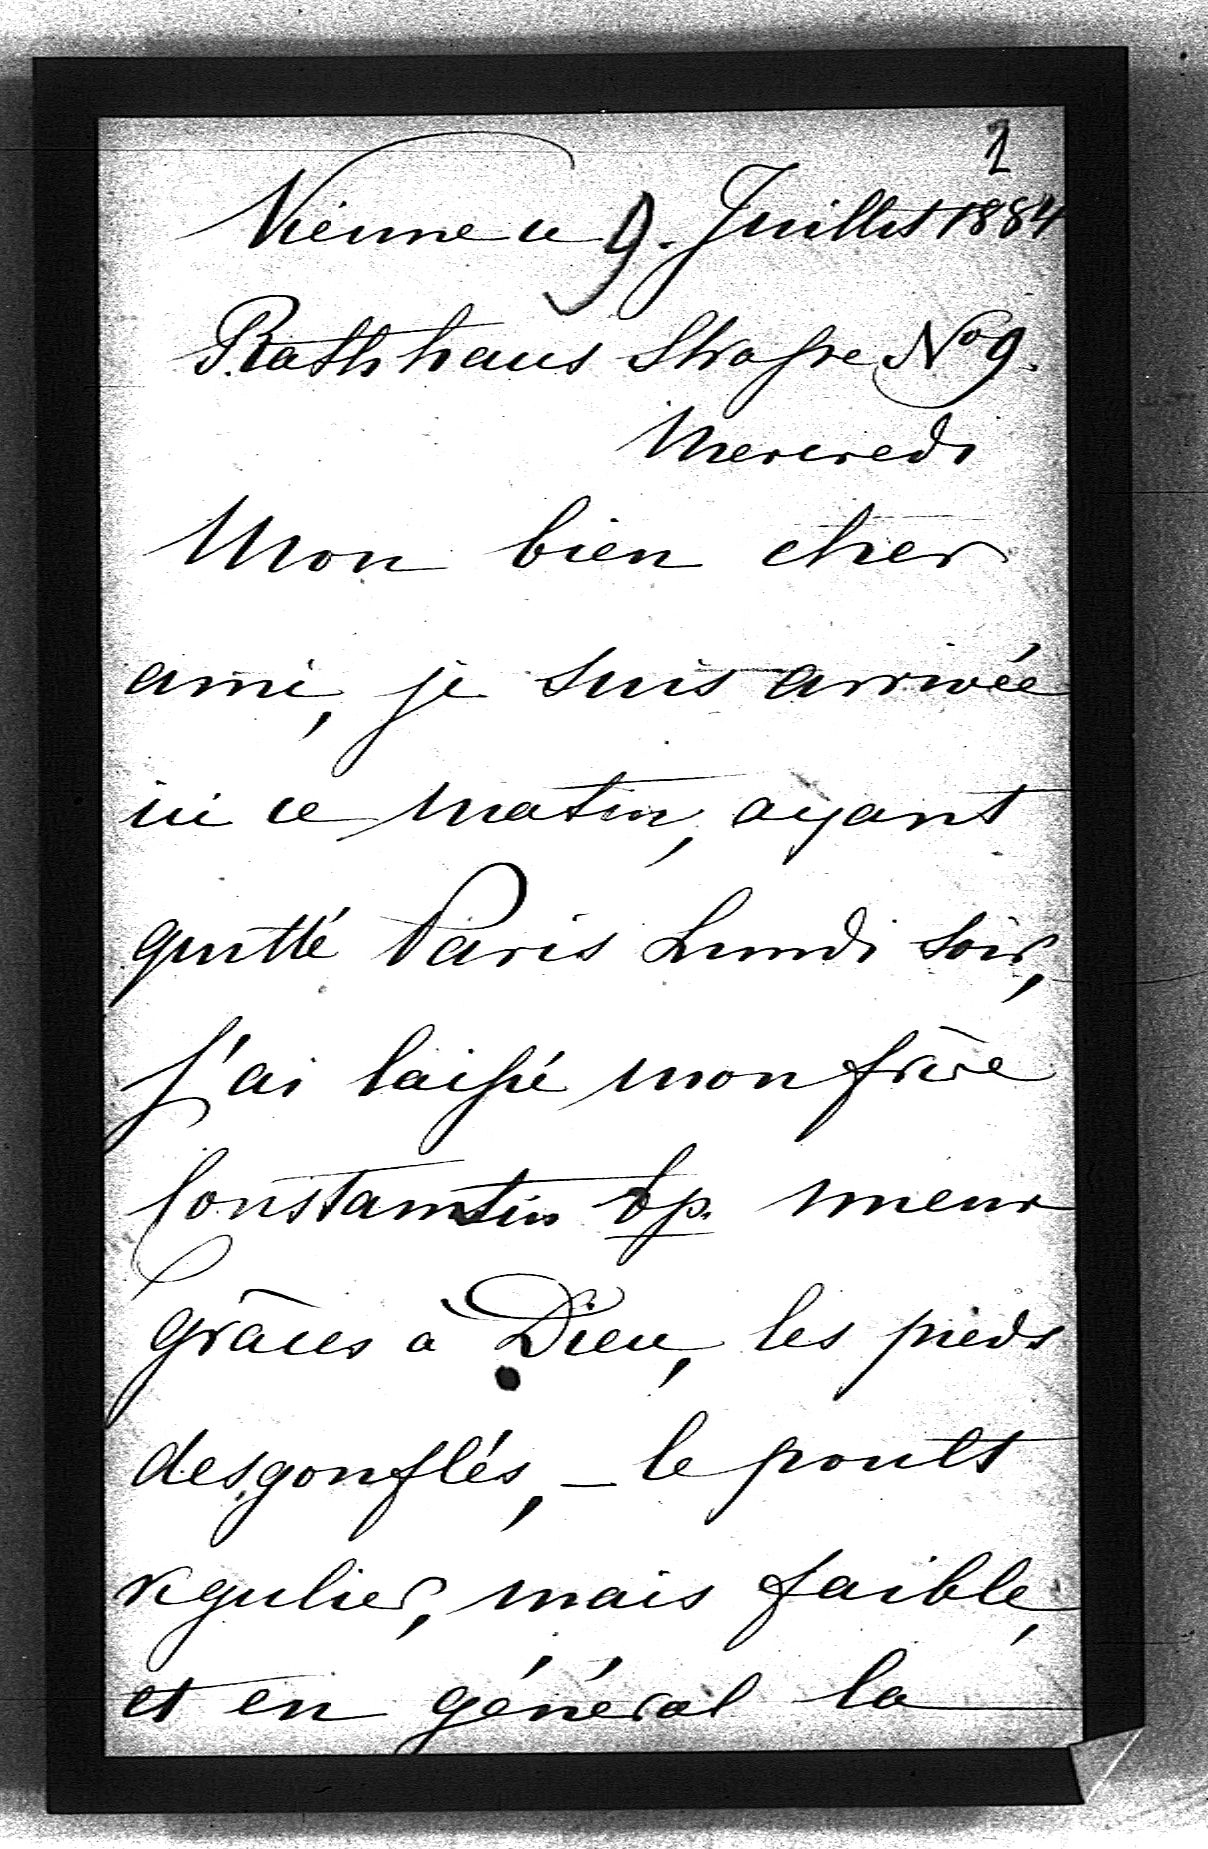 1
Vienne ce 9. Juillet 1884
Rathhaus Strasse No 9.
Mercredi
Mon bien cher
ami, je suis arrivée
ici ce matin, ayant
quitté Paris Lundi soir,
J'ai laissé mon frère
Constantin bp. mieux
grâces à Dieu, les pieds
desgonflés, – le poults
regulier, mais faible,
et en général la